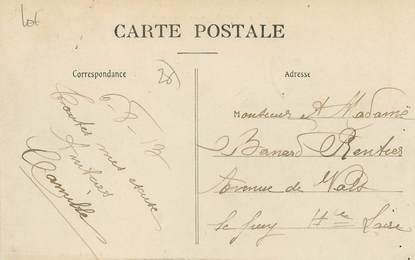 Lot
CARTE POSTALE
Correspondance
28
Adresse
6-8-13
Toutes mes
Amitiés
Camille
Monsieur et Madame
Bernard Rentier
Avenue de Vals
Le Puy Hte Loire